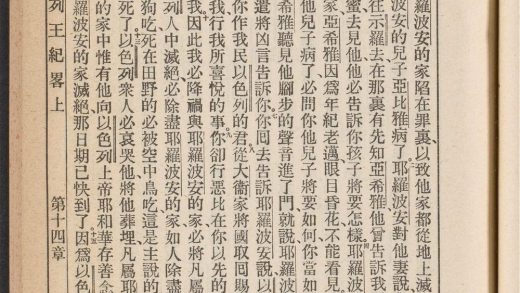 羅波安的家陷在罪裏、以致他家都從地上滅
波安的兒子亞比雅病了。耶羅波安對他妻說、
往示羅去、在那裏有先知亞希雅、他曾告訴我
蜜去見他、他必告訴你孩子將要怎樣。耶羅波
家、亞希雅因爲年紀老邁、眼目昏花、不能看見。
他兒子病了、必問你他兒子將要如何、你當如
希雅聽見他脚步的聲音、進了門、就說、耶羅波
遣、將凶言告訴你。你囘去告訴耶羅波安說、以
你作我民以色列的君、從大衞家將國取囘賜
我、行我所喜悅的事、你卻行惡、比在你以先的
我。因此我必降禍與耶羅波安的家、必將凡屬
列人中滅絕、必除盡耶羅波安的家、如人除盡
狗吃、死在田野的必被空中鳥吃、這是主說的
死了。以色列衆人必哀哭他、將他葬埋、凡屬耶
的家中、惟有他向以色列上帝耶和華存善念
羅波安的家滅絕、那日期已快到了。因爲以色
列王紀畧上 第十四章